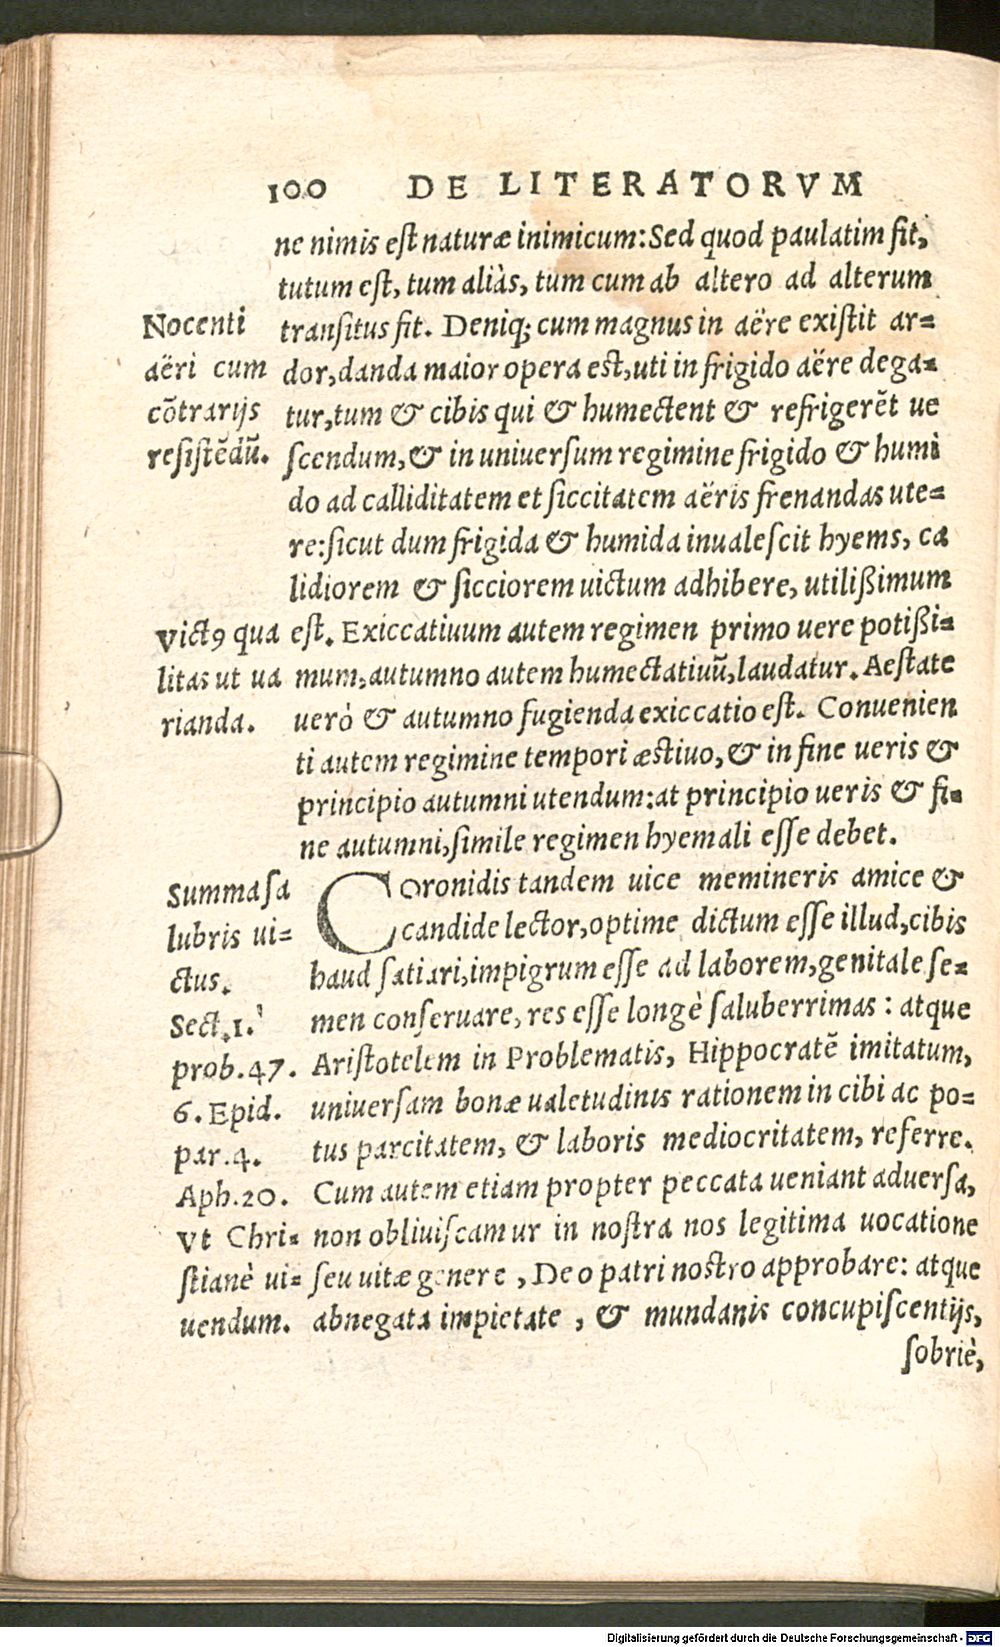 100 DE LITERATORVM
ne nimis est naturæ inimicum: Sed quod paulatim fit,
tutum est, tum aliàs, tum cum ab altero ad alterum
transitus fit. Deniq; cum magnus in aëre existit ar=
dor, danda maior opera est, uti in frigido aëre dega=
tur, tum & cibis qui & humectent & refrigerẽt ue
scendum, & in uniuersum regimine frigido & humi
do ad calliditatem et siccitatem aëris frenandas ute=
re: sicut dum frigida & humida inualescit hyems, ca
lidiorem & sicciorem uictum adhibere, utilißimum
est. Exiccatiuum autem regimen primo uere potißi=
mum, autumno autem humectatiuũ, laudatur. Aestate
uerò & autumno fugienda exiccatio est. Conuenien
ti autem regimine tempori æstiuo, & in fine ueris &
principio autumni utendum: at principio ueris & fi=
ne autumni, simile regimen hyemali esse debet.
Nocenti
aëri cum
cõtrarijs
resistẽdũ.
Vict9 qua
litas ut ua
rianda.
Coronidis tandem uice memineris amice &
candide lector, optime dictum esse illud, cibis
haud satiari, impigrum esse ad laborem, genitale se=
men conseruare, res esse longè saluberrimas: atque
Aristotelem in Problematis, Hippocratẽ imitatum,
uniuersam bonæ ualetudinis rationem in cibi ac po=
tus parcitatem, & laboris mediocritatem, referre.
Cum autem etiam propter peccata ueniant aduersa,
non obliuiscamur in nostra nos legitima uocatione
seu uitæ genere, Deo patri nostro approbare: atque
abnegata impietate, & mundanis concupiscentijs,
sobriè,
Summa sa
lubris ui=
ctus.
Sect.1.
prob.47.
6. Epid.
par.4.
Aph.20.
Vt Chri=
stianè ui=
uendum.
Digitalisierung gefördert durch die Deutsche Forschungsgemeinschaft - DFG